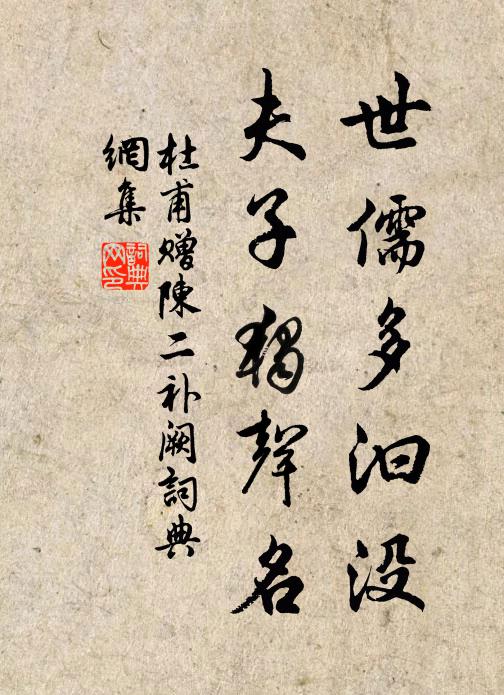 世儒多汩没
夫子独聲名
杜甫贈陳二补阙詞典
網集
詞典
网印